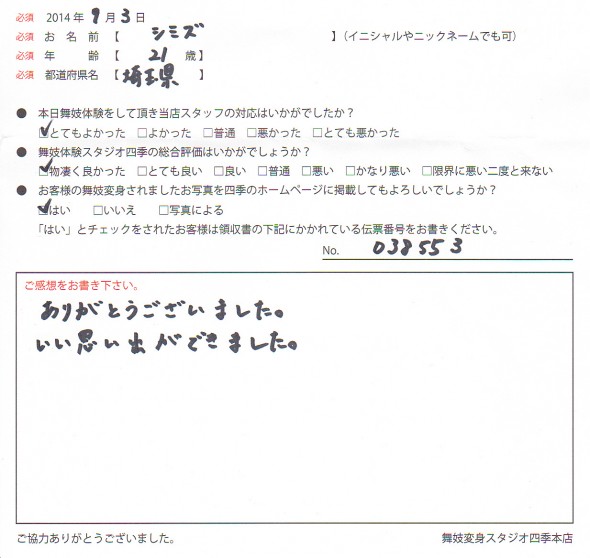 必須 2014年 9月 3日
必須 お名前【 シミズ 】(イニシャルやニックネームでも可)
必須 年齢【 21 歳】
必須 都道府県名【 埼玉県 】
● 本日舞妓体験をして頂き当店スタッフの対応はいかがでしたか?
☑とてもよかった □よかった □普通 □悪かった □とても悪かった
● 舞妓体験スタジオ四季の総合評価はいかがでしょうか?
☑物凄く良かった □とても良い □良い □普通 □悪い □かなり悪い □限界に悪い二度と来ない
● お客様の舞妓変身されましたお写真を四季のホームページに掲載してもよろしいでしょうか?
☑はい □いいえ □写真による
「はい」とチェックをされたお客様は領収書の下記にかかれている伝票番号をお書きください。
No. 038553
ご感想をお書き下さい。
ありがとうございました。
いい思い出ができました。
ご協力ありがとうございました。 舞妓変身スタジオ四季本店